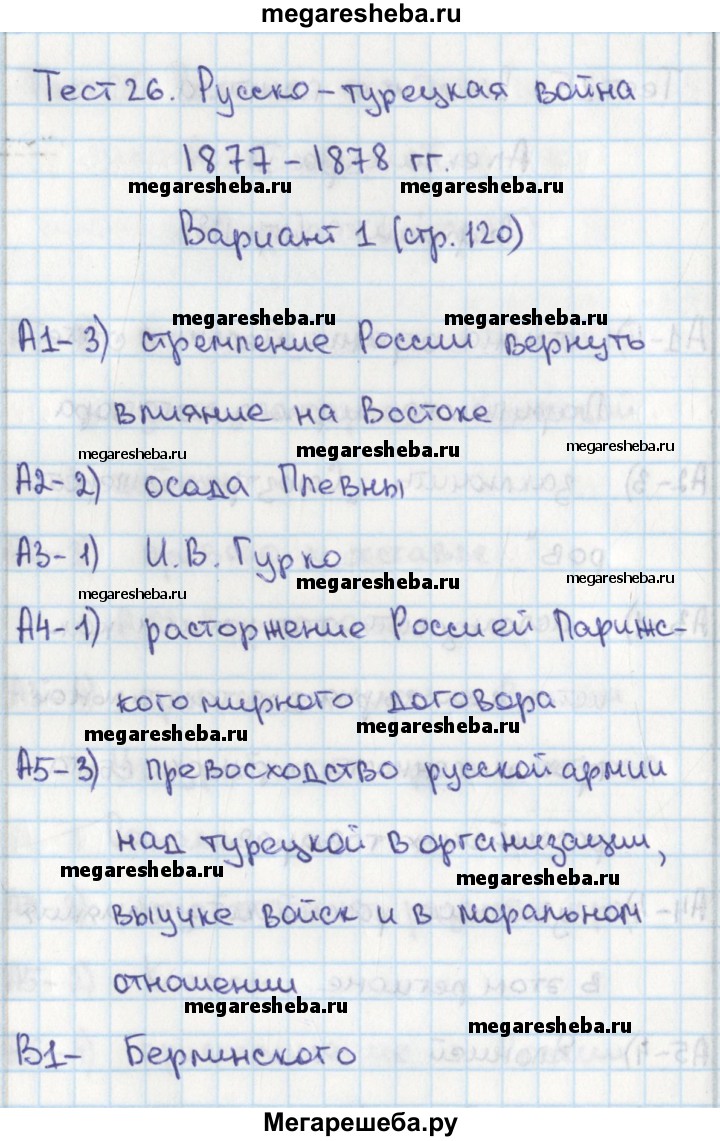 megaresheba.ru
Тест 26. Русско-турецкая война
1877-1878 гг.
megaresheba.ru megaresheba.ru
Вариант 1 (стр. 120)
megaresheba.ru megaresheba.ru
А1-3) стремление России вернуть
влияние на Востоке
megaresheba.ru megaresheba.ru megaresheba.ru
А2-2) осада Плевны
А3-1) И.В. Гурко
megaresheba.ru megaresheba.ru megaresheba.ru
А4-1) расторжение Россией Парижс-
кого мирного договора
megaresheba.ru megaresheba.ru
А5-3) превосходство русской армии
над турецкой в организации,
megaresheba.ru megaresheba.ru
выучке войск и в моральном
отношении
megaresheba.ru megaresheba.ru
В1- Берлинского
Мегарешеба.ру